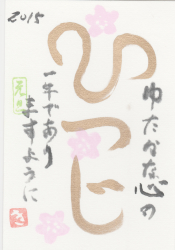 2015
ひつじ
ゆたかな心の
一年であり
ますように